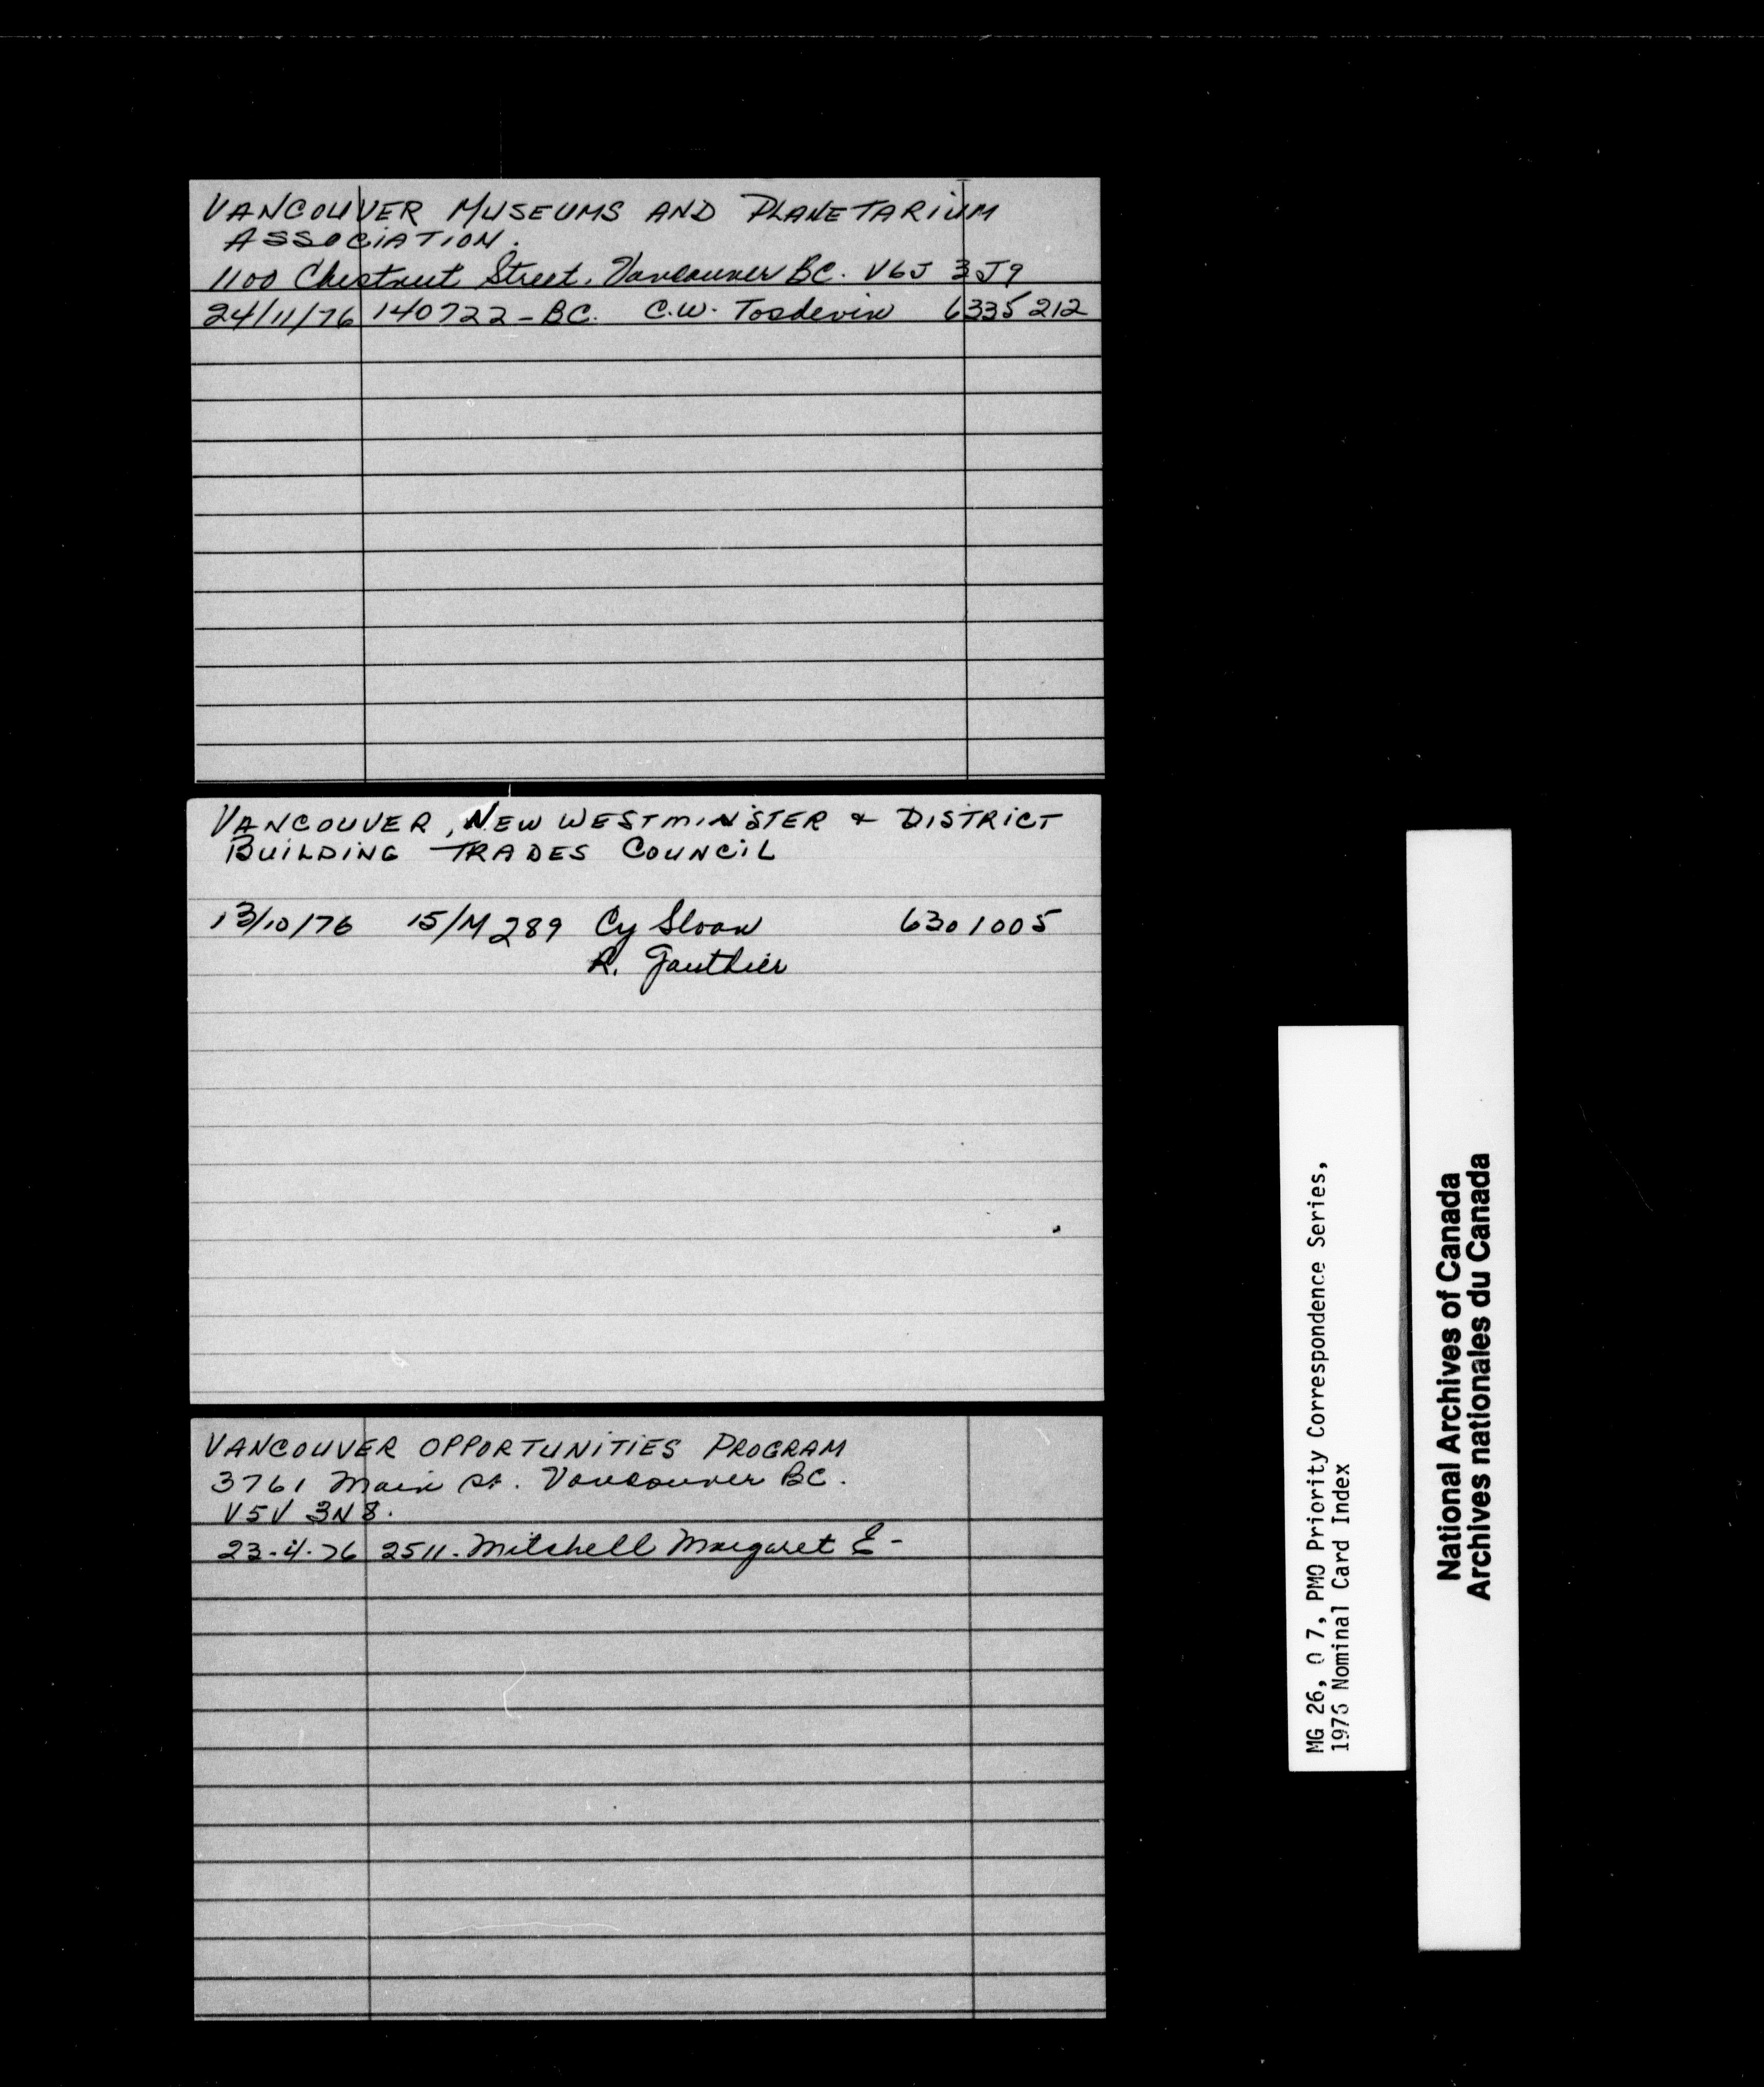 VANCOUVER MUSEUMS AND PLANETARIUM
ASSOCIATION.
1100 Chestnut Street. Vancouver BC. V6J 3J9
24/11/76 140722-BC. C.W. Tosdevin 6335212
VANCOUVER, NEW WESTMINSTER & DISTRICT
BUILDING TRADES COUNCIL
13/10/76 15/M289 Cy Sloan 6301005
R. Gauthier
VANCOUVER OPPORTUNITIES PROGRAM
3761 Main St. Vancouver BC.
V5V 3N8.
23-4-76 2511. Mitchell Margaret E-
MG 26, O 7, PMO Priority Correspondence Series,
1976 Nominal Card Index
National Archives of Canada
Archives nationales du Canada